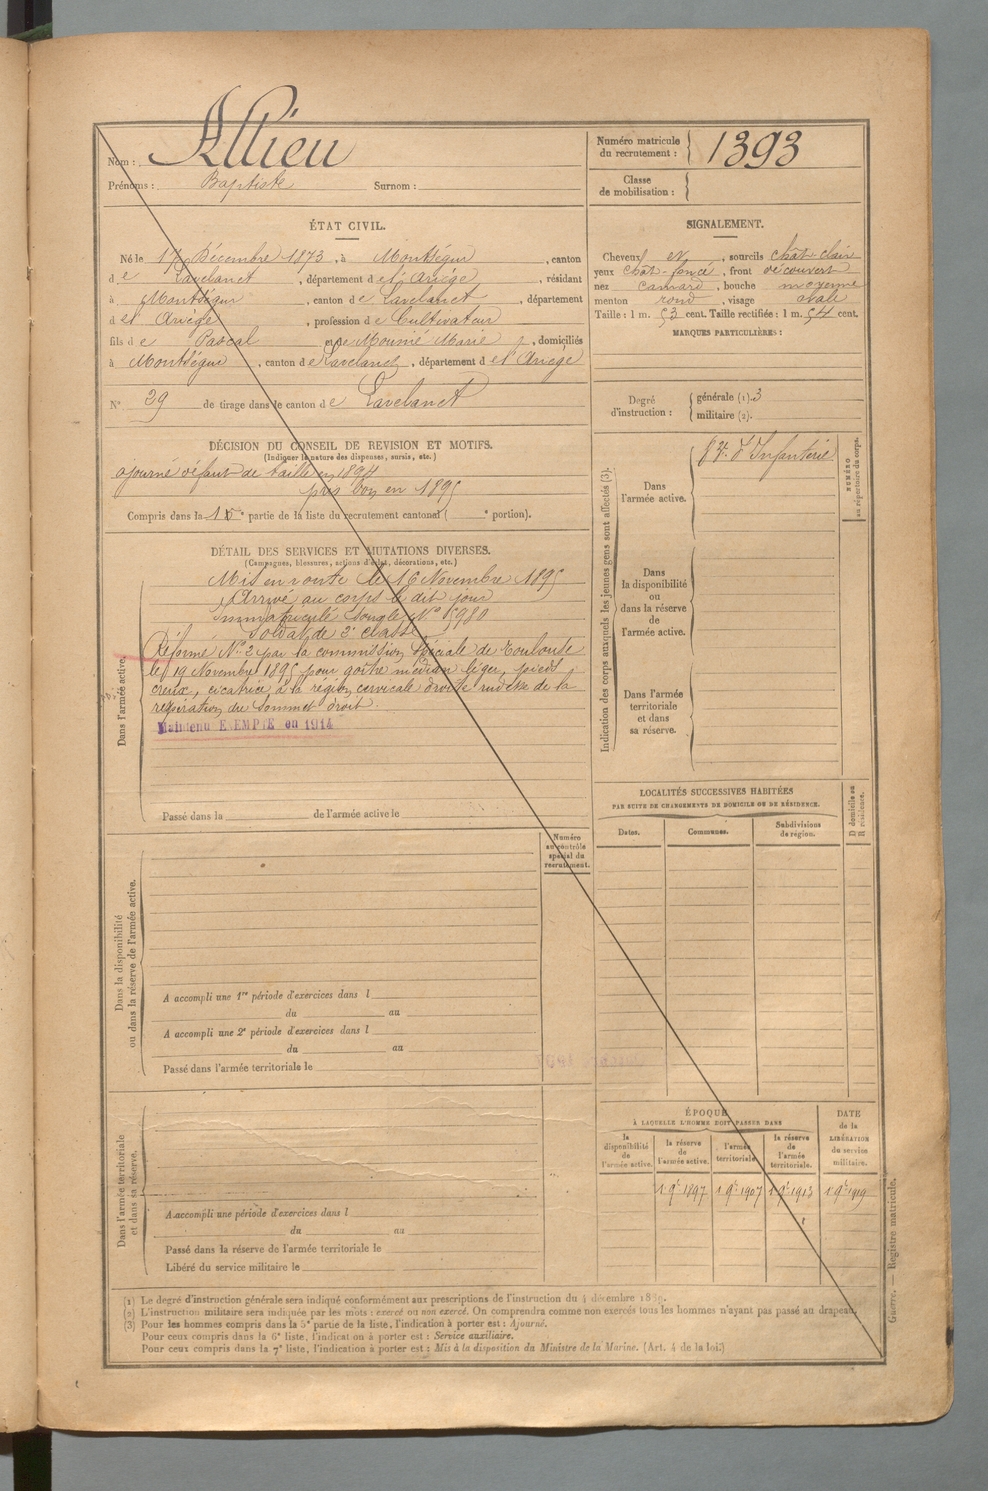 Nom : Allieu
Prénoms : Baptiste Surnom :
Numéro matricule du recrutement : 1393
Classe de mobilisation :
ÉTAT CIVIL.
Né le 17 Décembre 1873, à Montségur, canton
de Lavelanet, département de l'Ariège, résidant
à Montségur, canton de Lavelanet, département
de l'Ariège, profession de Cultivateur
fils de Pascal et de Mounié Marie, domiciliés
à Montségur, canton de Lavelanet, département de l'Ariège
N° 29 de tirage dans le canton de Lavelanet
SIGNALEMENT.
Cheveux et, sourcils chât-clair
yeux chât-foncé, front découvert
nez camard, bouche moyenne
menton rond, visage ovale
Taille : 1 m. 53 cent. Taille rectifiée : 1 m. 54 cent.
MARQUES PARTICULIÈRES :
Degré d'instruction : générale (1). 3
militaire (2).
DÉCISION DU CONSEIL DE REVISION ET MOTIFS.
(Indiquer la nature des dispenses, sursis, etc.)
ajourné défaut de taille en 1894
pris bon en 1895
Compris dans la 1e partie de la liste du recrutement cantonal ( e portion).
DÉTAIL DES SERVICES ET MUTATIONS DIVERSES.
(Campagnes, blessures, actions d'éclat, décorations, etc.)
Dans l'armée active.
Mis en route le 16 Novembre 1895
Arrivé au corps le dit jour
Immatriculé sous le N° 5980
Soldat de 2e classe
Réformé N° 2 par la commission spéciale de Toulouse
le 19 Novembre 1895 pour goitre médian léger, pieds
creux, cicatrice à la région cervicale droite rudesse de la
respiration du sommet droit.
Maintenu EXEMPTE en 1914
Passé dans la de l'armée active le
Indication des corps auxquels les jeunes gens sont affectés (3).
Dans l'armée active.
d'Infanterie
Dans la disponibilité ou dans la réserve de l'armée active.
Dans l'armée territoriale et dans sa réserve.
NUMÉRO au répertoire du corps.
LOCALITÉS SUCCESSIVES HABITÉES
PAR SUITE DE CHANGEMENTS DE DOMICILE OU DE RÉSIDENCE.
Dates. Communes. Subdivisions de région. D domicile ou R résidence.
Numéro au contrôle spécial du recrutement.
Dans la disponibilité ou dans la réserve de l'armée active.
A accompli une 1re période d'exercices dans l
du au
A accompli une 2e période d'exercices dans l
du au
Passé dans l'armée territoriale le
Dans l'armée territoriale et dans sa réserve.
A accompli une période d'exercices dans l
du au
Passé dans la réserve de l'armée territoriale le
Libéré du service militaire le
ÉPOQUE
À LAQUELLE L'HOMME DOIT PASSER DANS
la disponibilité de l'armée active.
la réserve de l'armée active.
l'armée territoriale.
la réserve de l'armée territoriale.
DATE de la LIBÉRATION du service militaire.
1 9e 1897 1 9e 1907 1 9e 1913 1 9e 1919
(1) Le degré d'instruction générale sera indiqué conformément aux prescriptions de l'instruction du 4 décembre 1889.
(2) L'instruction militaire sera indiquée par les mots : exercé ou non exercé. On comprendra comme non exercés tous les hommes n'ayant pas passé au drapeau.
(3) Pour les hommes compris dans la 5e partie de la liste, l'indication à porter est : Ajourné.
Pour ceux compris dans la 6e liste, l'indication à porter est : Service auxiliaire.
Pour ceux compris dans la 7e liste, l'indication à porter est : Mis à la disposition du Ministre de la Marine. (Art. 4 de la loi.)
Guerre. — Registre matricule.